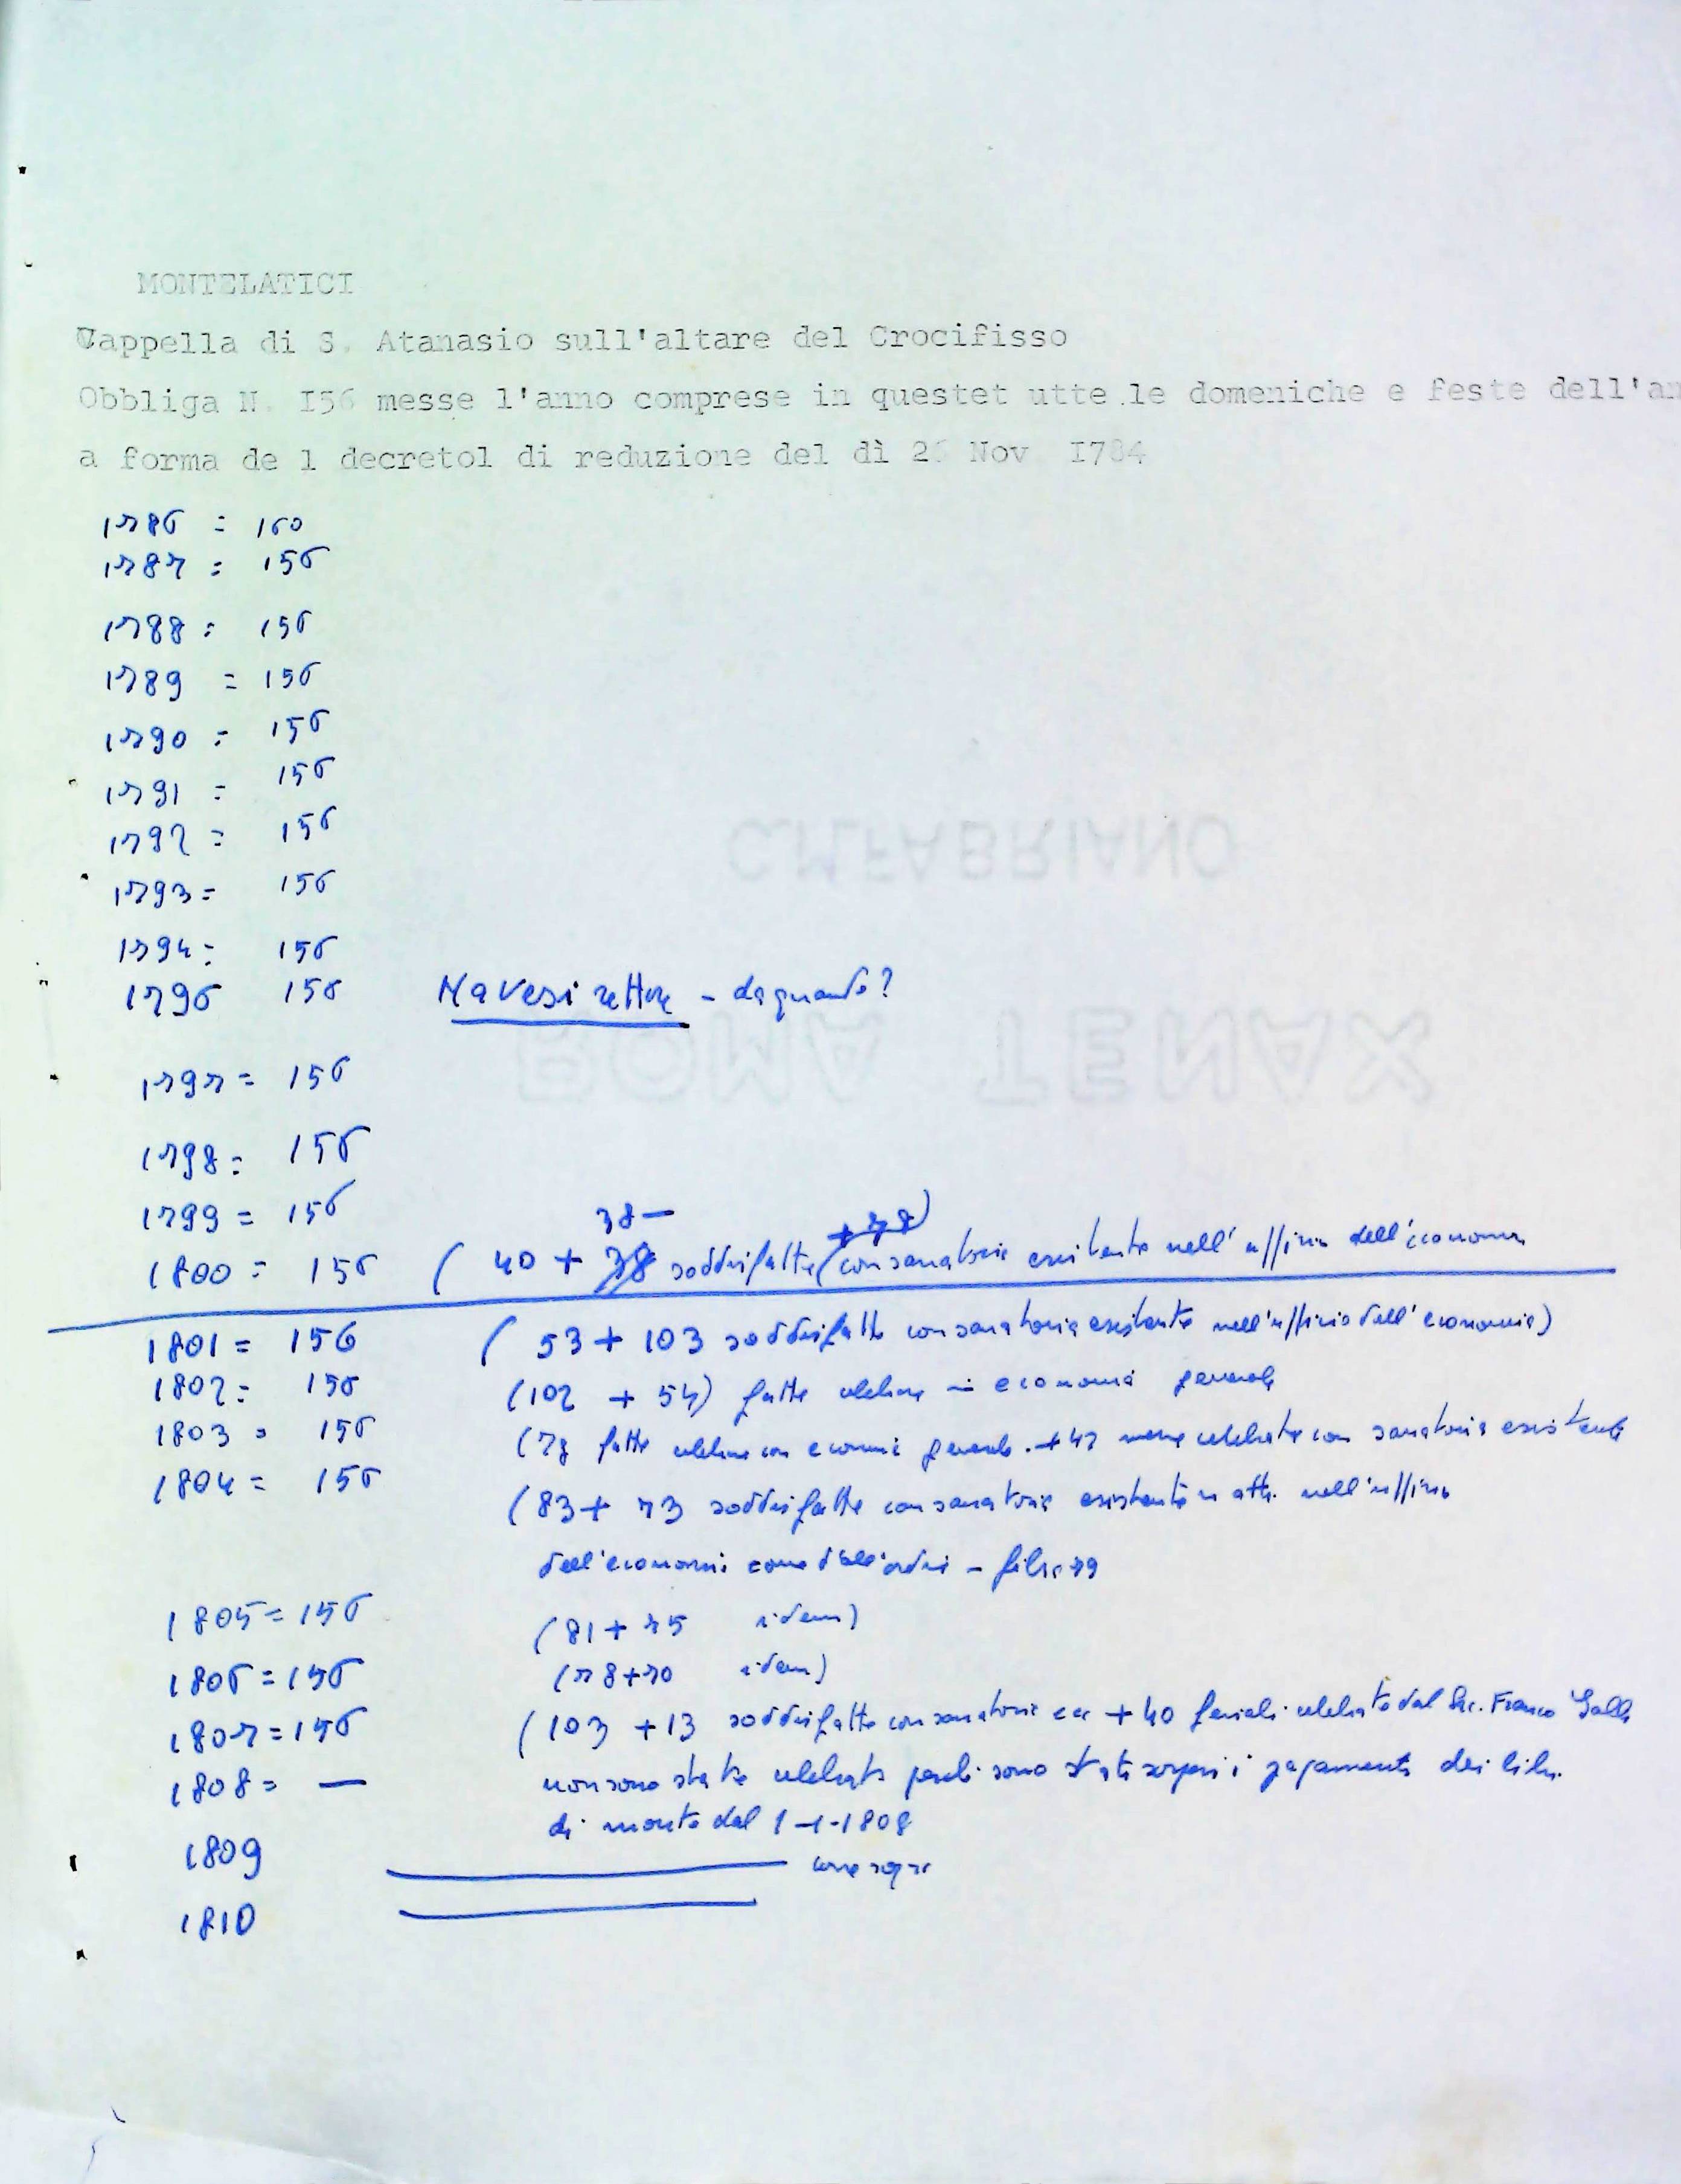 MONTELATICI
Cappella di S. Atanasio sull'altare del Crocifisso
Obbliga N. I56 messe l'anno comprese in questet utte le domeniche e feste dell'an
a forma de l decretol di reduzione del dì 26 Nov I784
1786 = 160
1787 = 156
1788 = 156
1789 = 156
1790 = 156
1791 = 156
1792 = 156
1793 = 156
1794 = 156
1796 156 Navesi rettore - da quando?
1797 = 156
1798 = 156
1799 = 156
38 - + 78)
1800 = 156 ( 40 + 38 soddisfatte (con sanatoria esistente nell'uffizio dell'economia
1801 = 156 ( 53 + 103 soddisfatte con sanatoria esistente nell'uffizio dell'economia)
1802 = 156 (102 + 54) fatte celebrare in economia generale
1803 = 156 (78 fatte celebrare con economia generale. + 47 messe celebrate con sanatoria esistente
1804 = 156 (83 + 73 soddisfatte con sanatoria esistente in atti nell'uffizio
dell'economia come dall'ordine - filza 79
1805 = 156 (81 + 75 idem)
1806 = 156 (78+70 idem)
1807 = 156 (103 + 13 soddisfatte con sanatoria ecc + 40 feriali celebrate dal Sac. Franco Galli
1808 = — non sono state celebrate perché sono stati sospesi i pagamenti dei
di monte dal 1-1-1808
1809 come sopra
1810
C.M.FABRIANO
ROMA TENAX